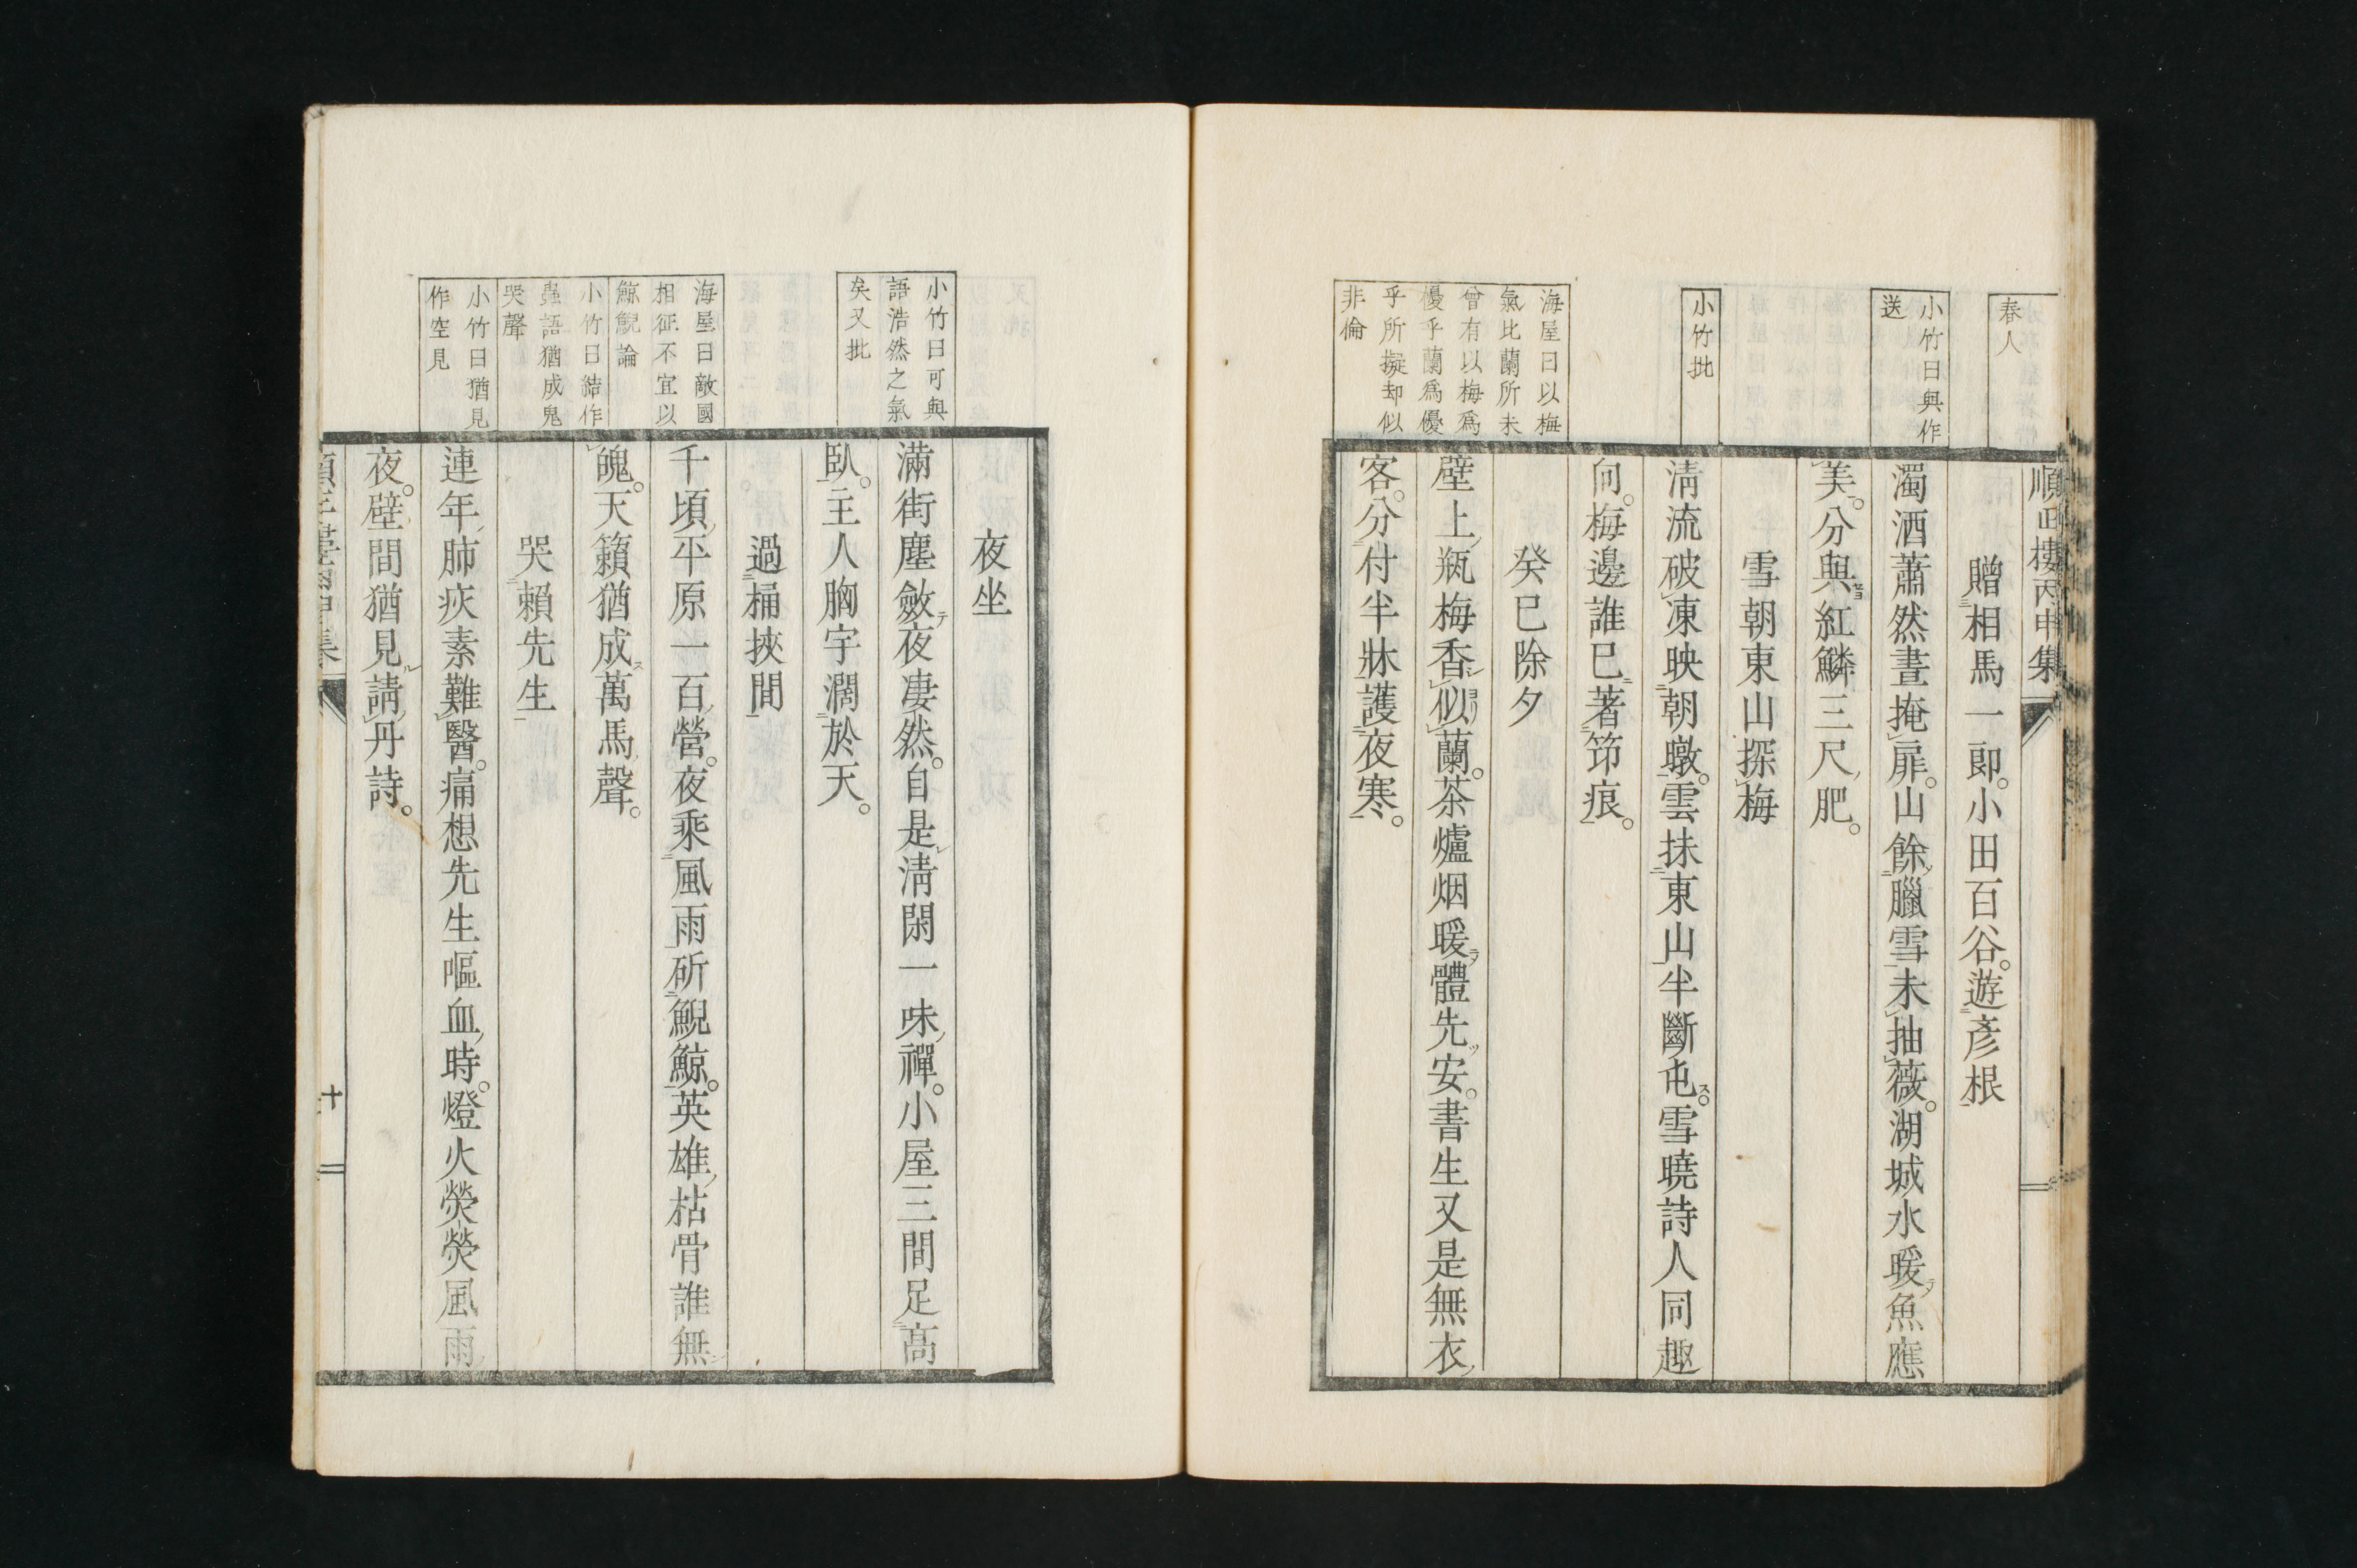 順正樓丙申集
春人
小竹曰與作
送
贈相馬一郎。小田百谷。遊彥根
濁酒蕭然晝掩扉。山餘臘雪未抽薇。湖城水暖魚應
美。分與紅鱗三尺肥。
雪朝東山探梅
小竹批
清流破凍映朝暾。雲抹東山半斷屯。雪曉詩人同趣
向。梅邊誰已著笻痕。
癸巳除夕
海屋曰以梅
氣比蘭所未
曾有以梅爲
優乎蘭爲優
乎所擬却似
非倫
壁上瓶梅香似蘭。茶爐烟暖體先安。書生又是無衣
客。分付半牀護夜寒。
夜坐
小竹曰可與
語浩然之氣
矣又批
滿街塵斂夜凄然。自是清閑一味禪。小屋三間足高
臥。主人胸宇濶於天。
過桶挾間
海屋曰敵國
相征不宜以
鯨鯢論
千頃平原一百營。夜乘風雨斫鯢鯨。英雄枯骨誰無
小竹曰結作
蟲語猶成鬼
哭聲
魄。天籟猶成萬馬聲。
哭賴先生
連年肺疾素難醫。痛想先生嘔血時。燈火熒熒風雨
小竹曰猶見
作空見
夜。壁間猶見請丹詩。
十